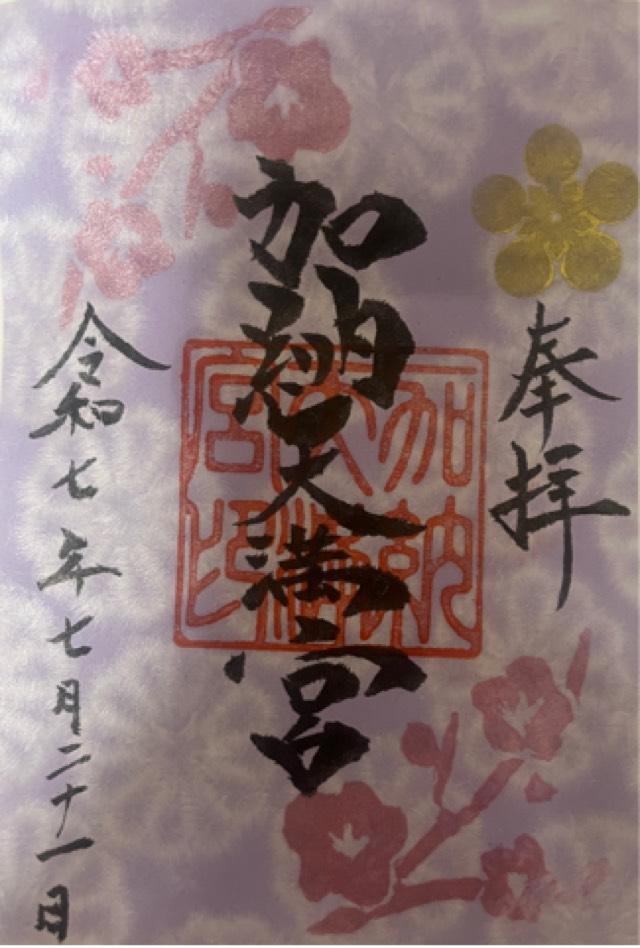 奉拝
加納天満宮
加納天満宮印
令和七年七月二十一日